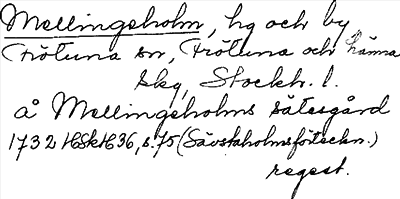 Mellingsholm, hg och by
Frötuna sn, Frötuna och Länna
skg, Stockh. l.
å Mellingsholms sätesgård
1732 HSkH36, s. 75 (Sävstaholmsförteckn.)
regest.